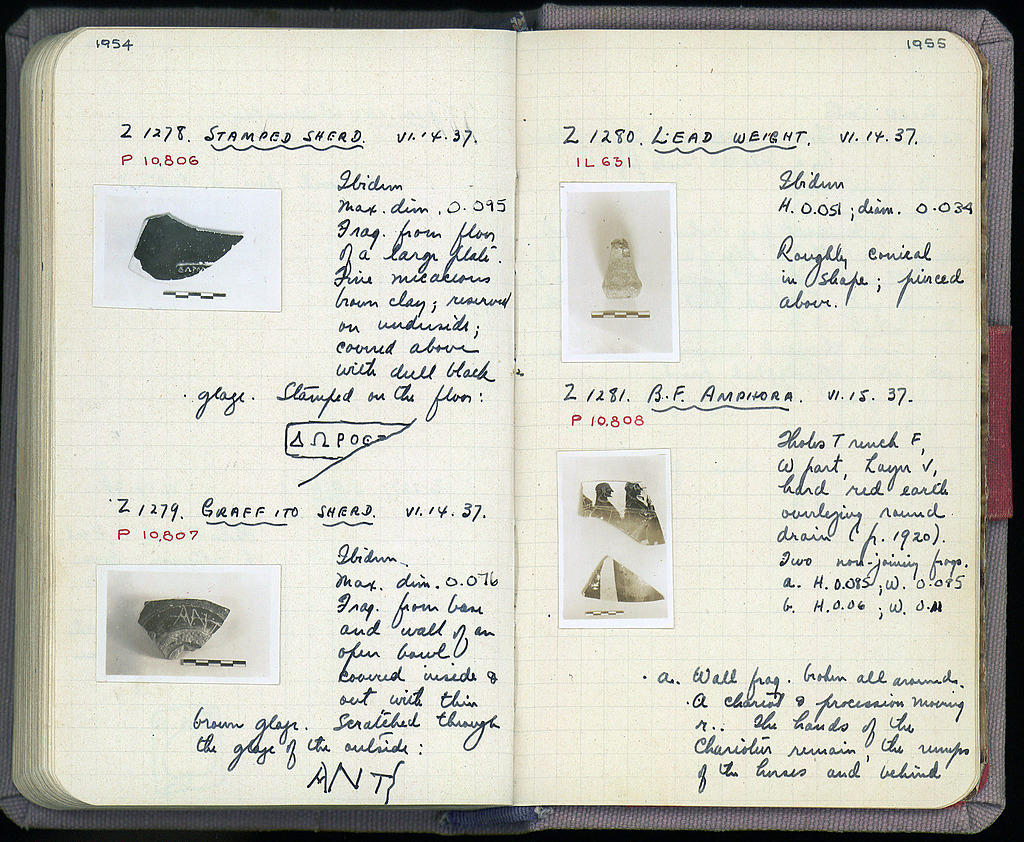 1954
Z 1278. STAMPED SHERD. VI.14.37.
P 10,806
Ibidem
Max. dim. 0.095
Frag. from floor
of a large plate.
Fine micaceous
brown clay; reserved
on underside;
covered above
with dull black
glaze. Stamped on the floor:
ΔΩΡΟΘ
Z 1279. GRAFFITO SHERD. VI.14.37.
P 10,807
Ibidem
Max. dim. 0.076
Frag. from base
and wall of an
open bowl
covered inside &
out with thin
brown glaze. Scratched through
the glaze of the outside:
ΑΝΤ
1955
Z 1280. LEAD WEIGHT. VI.14.37.
IL 631
Ibidem
H. 0.051; diam. 0.034
Roughly conical
in shape; pierced
above.
Z 1281. B.F. AMPHORA. VI.15.37.
P 10,808
Tholos Trench F,
W part, Layer V,
hard red earth
overlying round
drain (p. 1920).
Two non-joining frags.
a. H. 0.085; W. 0.085
b. H. 0.06; W. 0.11
a. Wall frag. broken all around.
A chariot & procession moving
r.. The hands of the
Charioteer remain, the rumps
of the horses and behind